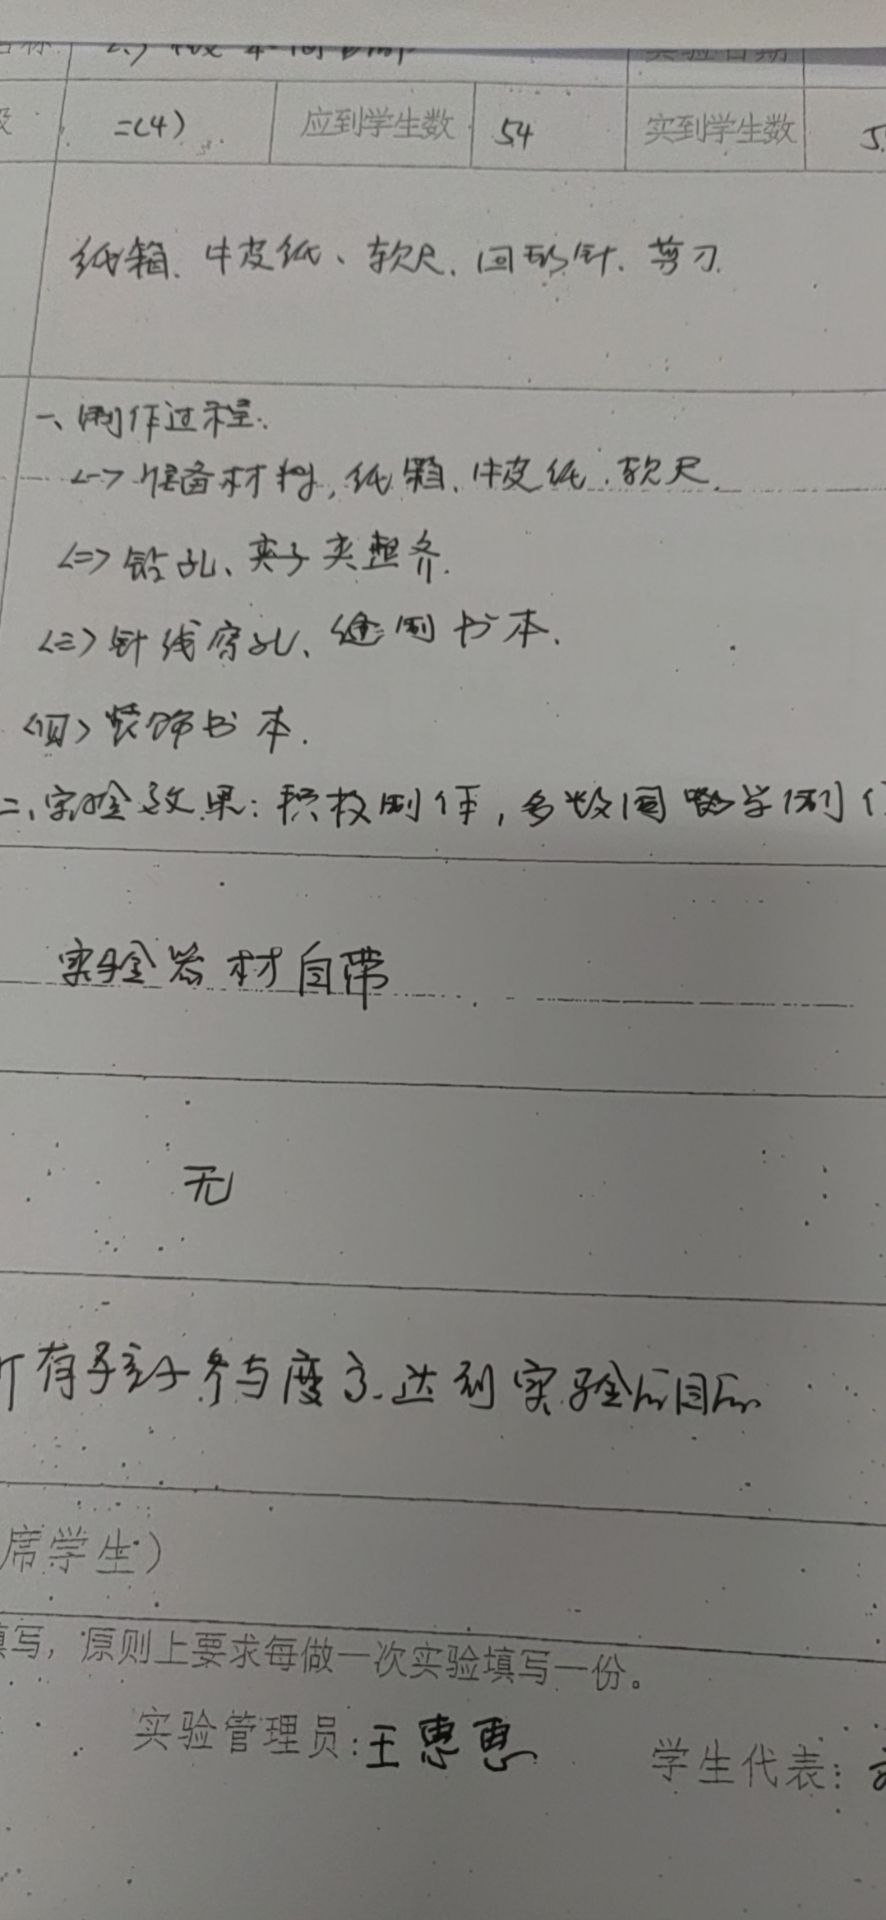 二(4) 应到学生数 54 实到学生数
纸箱、牛皮纸、软尺、回形针、剪刀
一、制作过程.
<一>准备材料,纸箱、牛皮纸、软尺.
<二>钻孔、夹子夹整齐.
<三>针线穿孔、缝制书本.
<四>装饰书本.
二、实验效果:积极制作,多数同学制作
实验器材自带
无
所有孩子参与度高、达到实验的目的
席学生)
填写,原则上要求每做一次实验填写一份。
实验管理员:王惠惠 学生代表: